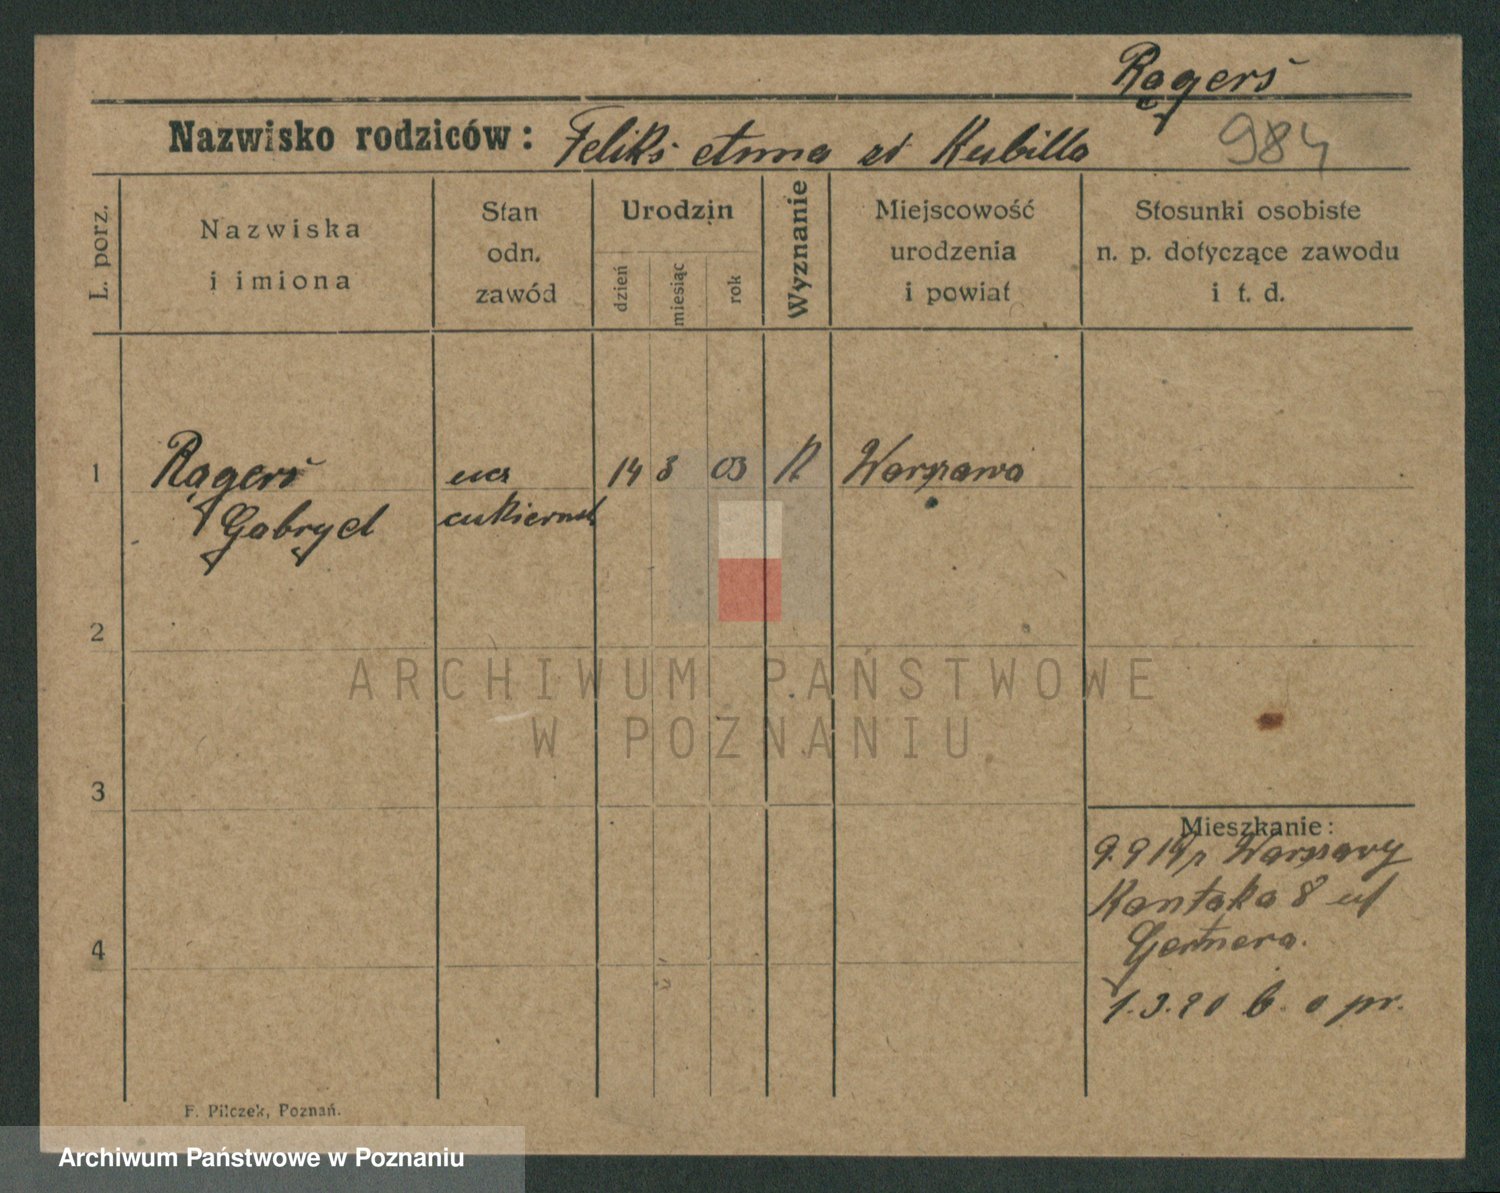 Rągerś
Nazwisko rodziców: Feliks Anna zd Kubilla
984
L. porz.
Nazwiska
i imiona
Stan
odn.
zawód
Urodzin
dzień
miesiąc
rok
Wyznanie
Miejscowość
urodzenia
i powiat
Stosunki osobiste
n. p. dotyczące zawodu
i t. d.
1 Rągerś ucz 14 8 03 R Warszawa
Gabryel cukiernik
2
ARCHIWUM PAŃSTWOWE
W POZNANIU
3
Mieszkanie:
9.9 19 z Warszawy
Kantaka 8 ul
4
1.3.20 b. o pr.
F. Pilczek, Poznań.
Archiwum Państwowe w Poznaniu